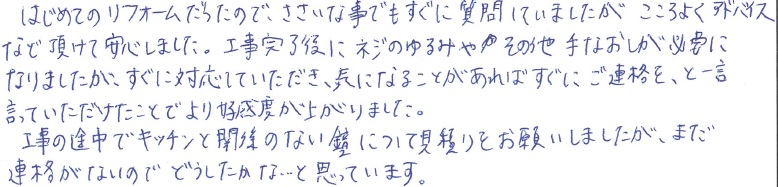 はじめてのリフォームだったので、ささいな事でもすぐに質問していましたが こころよくアドバイス
など頂けて安心しました。工事完了後に ネジのゆるみや その他 手なおしが必要に
なりましたが、すぐに対応していただき、気になることがあればすぐに ご連絡を、と一言
言っていただけたことでより好感度が上がりました。
工事の途中でキッチンと関係のない鏡について見積りをお願いしましたが、まだ
連絡がないので どうしたかな…と思っています。